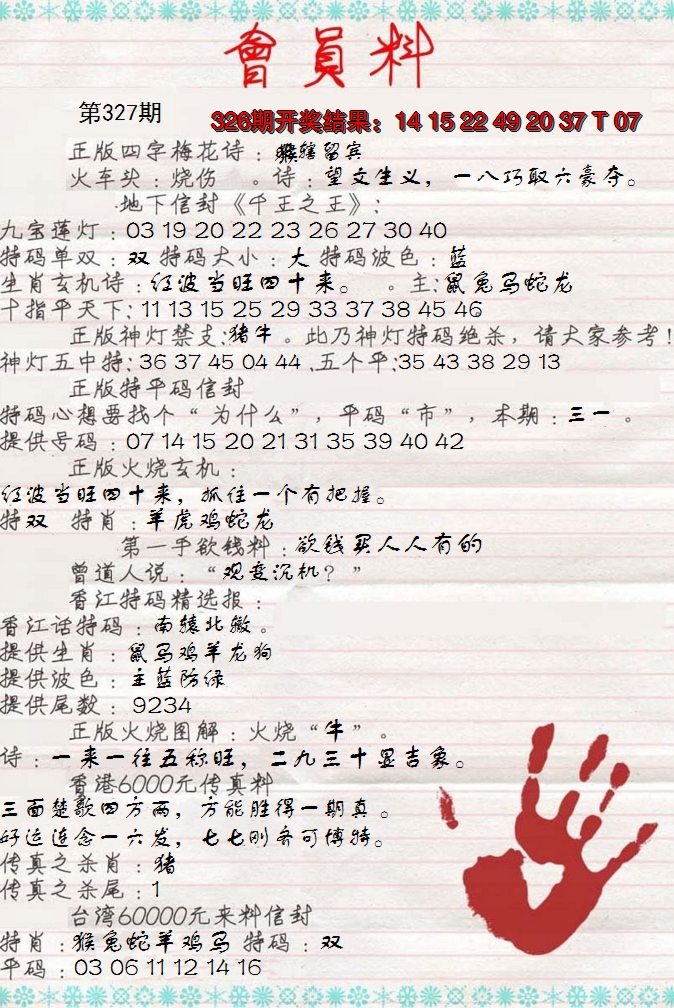 會員料
第327期
326期开奖结果：14 15 22 49 20 37 T 07
正版四字梅花诗：投辖留宾
火车头：烧伤 。诗：望文生义，一八巧取六豪夺。
地下信封《千王之王》：
九宝莲灯：03 19 20 22 23 26 27 30 40
特码单双：双 特码大小：大 特码波色：蓝
生肖玄机诗：红波当旺四十来。 。主：鼠兔马蛇龙
十指平天下：11 13 15 25 29 33 37 38 45 46
正版神灯禁支：猪牛 。此乃神灯特码绝杀，请大家参考！
神灯五中特：36 37 45 04 44 .五个平：35 43 38 29 13
正版特平码信封
特码心想要找个“为什么”，平码“市”，本期：三一 。
提供号码：07 14 15 20 21 31 35 39 40 42
正版火烧玄机：
红波当旺四十来，抓住一个有把握。
特双 特肖：羊虎鸡蛇龙
第一手欲钱料：欲钱买人人有的
曾道人说：“观变沉机？”
香江特码精选报：
香江话特码：南辕北辙。
提供生肖：鼠马鸡羊龙狗
提供波色：主蓝防绿
提供尾数：9234
正版火烧图解：火烧“牛”。
诗：一来一往五称旺，二九三十显吉象。
香港6000元传真料
三面楚歌四方两，方能胜得一期真。
好运连念一六发，七七刚务可博特。
传真之杀肖：猪
传真之杀尾：1
台湾60000元来料信封
特肖：猴兔蛇羊鸡马 特码：双
平码：03 06 11 12 14 16